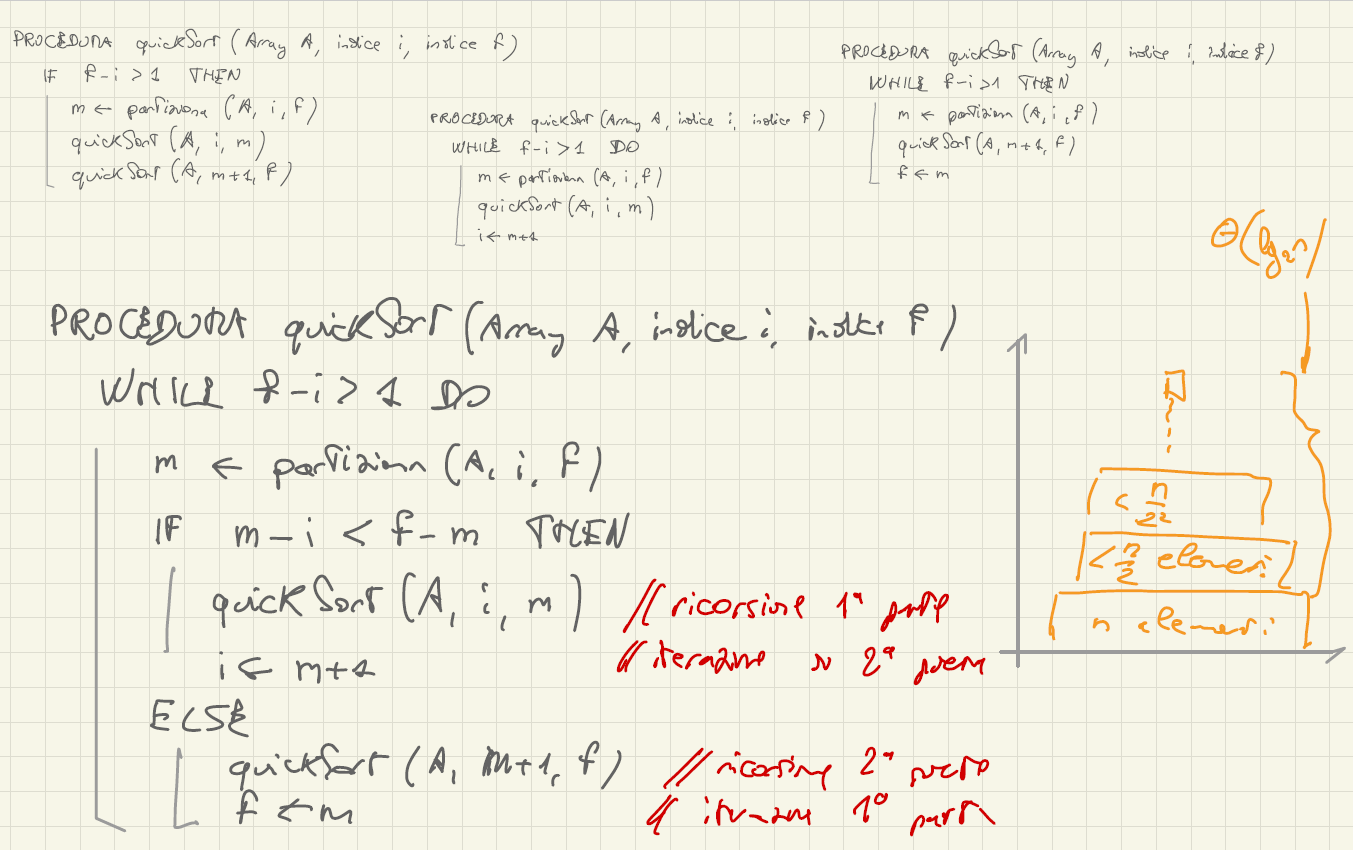 PROCEDURA quickSort (Array A, indice i, indice f)
IF f-i > 1 THEN
m ← partiziona (A, i, f)
quickSort (A, i, m)
quickSort (A, m+1, f)
PROCEDURA quickSort (Array A, indice i, indice f)
WHILE f-i > 1 DO
m ← partiziona (A, i, f)
quickSort (A, i, m)
i ← m+1
PROCEDURA quickSort (Array A, indice i, indice f)
WHILE f-i > 1 THEN
m ← partiziona (A, i, f)
quickSort (A, m+1, f)
f ← m
PROCEDURA quickSort (Array A, indice i, indice f)
WHILE f-i > 1 DO
m ← partiziona (A, i, f)
IF m-i < f-m THEN
quickSort (A, i, m) // ricorsione 1ª parte
i ← m+1 // iterazione su 2ª
ELSE
quickSort (A, m+1, f) // ricorsione 2ª parte
f ← m // iterazione 1ª parte
Θ(log₂n)
< n/2²
< n/2 elementi
n elementi